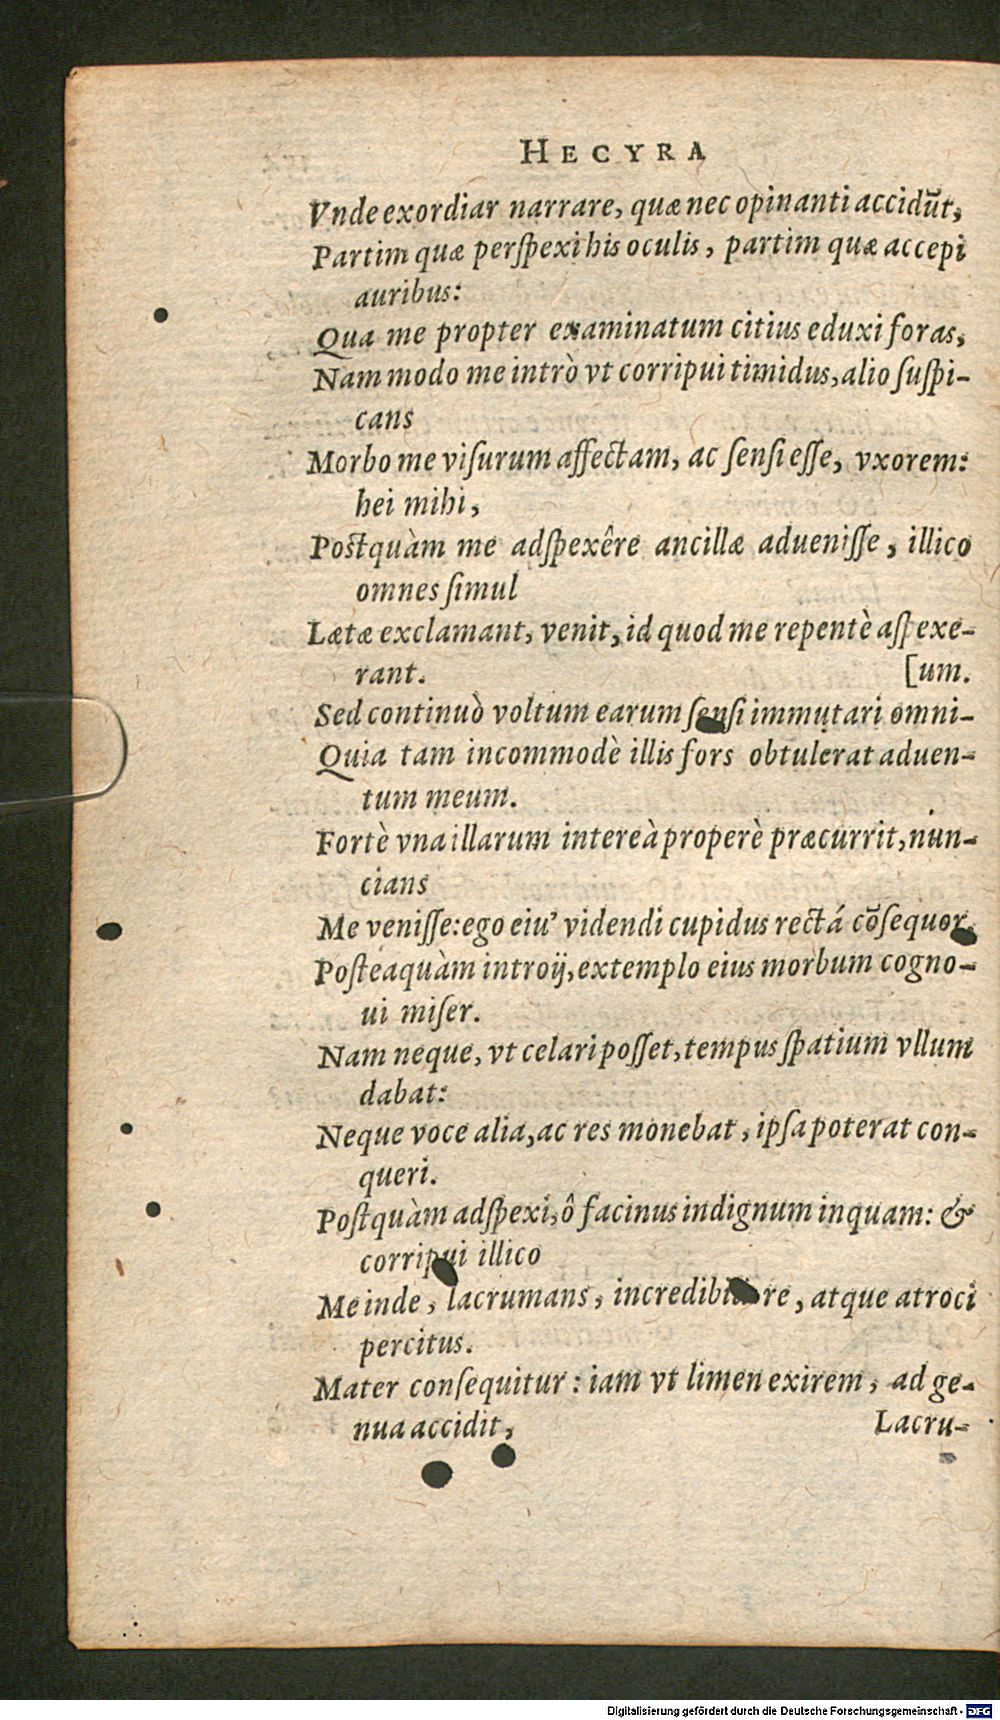 HECYRA
Vnde exordiar narrare, quæ nec opinanti accidũt,
Partim quæ perſpexi his oculis, partim quæ accepi
auribus:
Qua me propter examinatum citius eduxi foras,
Nam modo me intrò vt corripui timidus, alio ſuſpi-
cans
Morbo me viſurum affectam, ac ſenſi eſſe, vxorem:
hei mihi,
Poſtquàm me adſpexêre ancillæ adueniſſe, illico
omnes ſimul
Lætæ exclamant, venit, id quod me repentè aſpexe-
rant. [um.
Sed continuò voltum earum ſenſi immutari omni-
Quia tam incommodè illis fors obtulerat aduen-
tum meum.
Fortè vna illarum intereà properè præcurrit, nun-
cians
Me veniſſe: ego eiu’ videndi cupidus rectá cõſequor.
Poſteaquàm introij, extemplo eius morbum cogno-
ui miſer.
Nam neque, vt celari poſſet, tempus ſpatium vllum
dabat:
Neque voce alia, ac res monebat, ipſa poterat con-
queri.
Poſtquàm adſpexi, ô facinus indignum inquam: &
corripui illico
Me inde, lacrumans, incredibili re, atque atroci
percitus.
Mater conſequitur: iam vt limen exirem, ad ge-
nua accidit, Lacru-
Digitalisierung gefördert durch die Deutsche Forschungsgemeinschaft - DFG